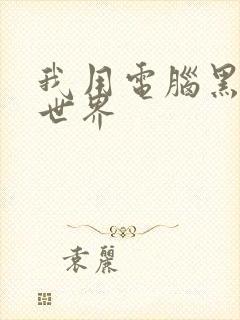 我用電腦黑
世界
袁麗